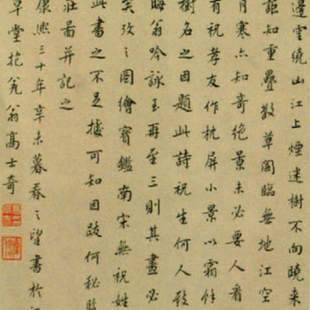 邊雲繞山江上煙迷樹不向曉來
詎知重疊數草閣臨無地江空
月寒亦知奇絕景未必要人看
有祝孝友作枕屏小景以霜餘
樹名之因題此詩祝生何人致
晦翁吟詠至再至三則其畫必
矣攷之圖繪寶鑑南宋無祝姓
此書之不足據可知因跋何秘監
莊圖并記之
康熙三十年辛未暮春之望書於江
草堂抱瓮翁高士奇